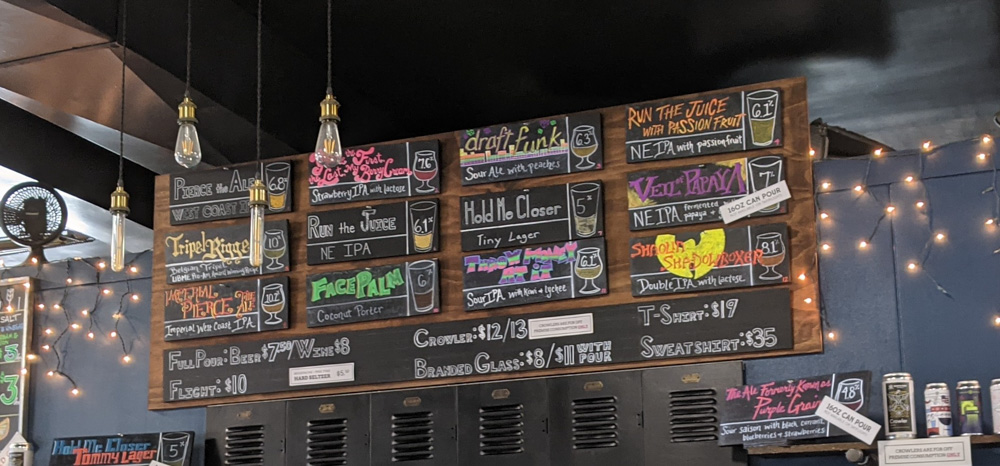 PIERCE THE ALE
WEST COAST
6.8%
First
Berry
Strawberry IPA with lactose
7.6
draft funk
Sour Ale with peaches
6.3
RUN THE JUICE
WITH PASSION FRUIT
NE IPA with passionfruit
6.1%
Tripel
Belgian Tripel
10%
RUN THE JUICE
NE IPA
6.1%
Hold Me Closer
Tiny Lager
5%
VELVET PAPAYA
NE IPA fermented
papaya
7%
16OZ CAN POUR
IMPERIAL
PIERCE THE ALE
Imperial West Coast IPA
10.2%
FACE PALM
Coconut Porter
6%
Sour IPA with Kiwi & Lychee
6.1%
SHAOLIN
SHADOWBOXER
Double IPA with lactose
8.1%
FULL POUR: BEER $7.50/WINE $8
FLIGHT: $10
HARD SELTZER
CROWLER: $12/13
CROWLERS ARE FOR OFF
PREMISE CONSUMPTION ONLY
BRANDED GLASS: $8/$11 WITH
POUR
T-SHIRT: $19
SWEATSHIRT: $35
Hold Me Closer
Tommy Lager
5%
The Ale Formerly Known as
Purple Grain
Sour saison with black currant,
blueberries & strawberries
4.8%
16OZ CAN POUR
CROWLERS ARE FOR OFF
PREMISE CONSUMPTION ONLY
SALT